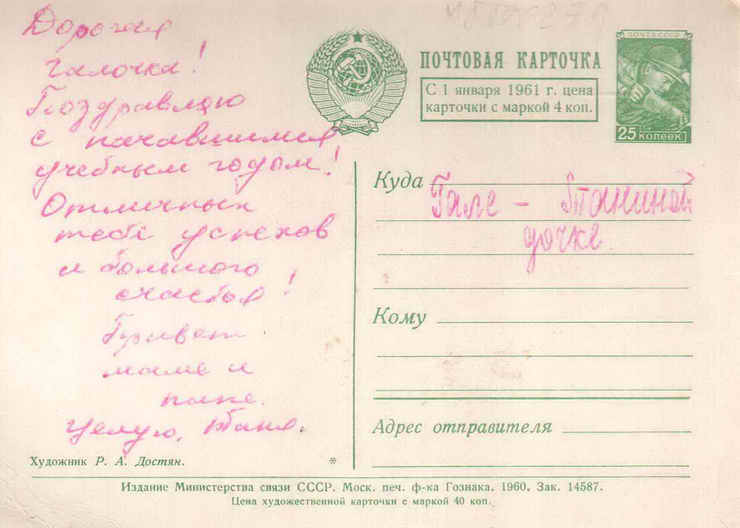 Дорогая
Галочка!
Поздравляю
с начавшимся
учебным годом!
Отличных
тебе успехов
и большого
счастья!
Привет
маме и
папе.
Целую, Таня.
Художник Р. А. Достян.
*
ПОЧТОВАЯ КАРТОЧКА
С 1 января 1961 г. цена
карточки с маркой 4 коп.
ПОЧТА СССР
25 КОПЕЕК
Куда
Гале - Таниной
дочке
Кому
Адрес отправителя
Издание Министерства связи СССР. Моск. печ. ф-ка Гознака. 1960. Зак. 14587.
Цена художественной карточки с маркой 40 коп.